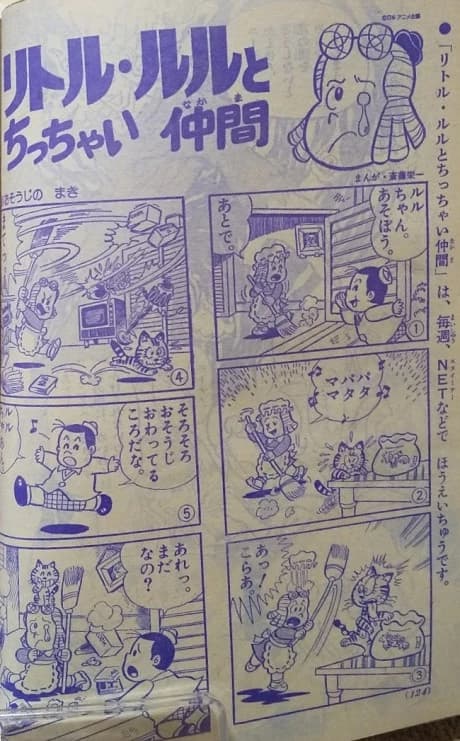 リトル・ルルと
ちっちゃい仲間
なかま
まんが・斎藤栄一
おそうじの まき
●「リトル・ルルとちっちゃい仲間」は、毎週、NETなどで ほうえいちゅうです。
ルルちゃん。
あそぼう。
あとで。
①
マパパ
マタタ
②
あっ!
こらあ。
③
④
そろそろ
おそうじ
おわってる
ころだな。
⑤
あれっ。
まだ
なの?
(124)